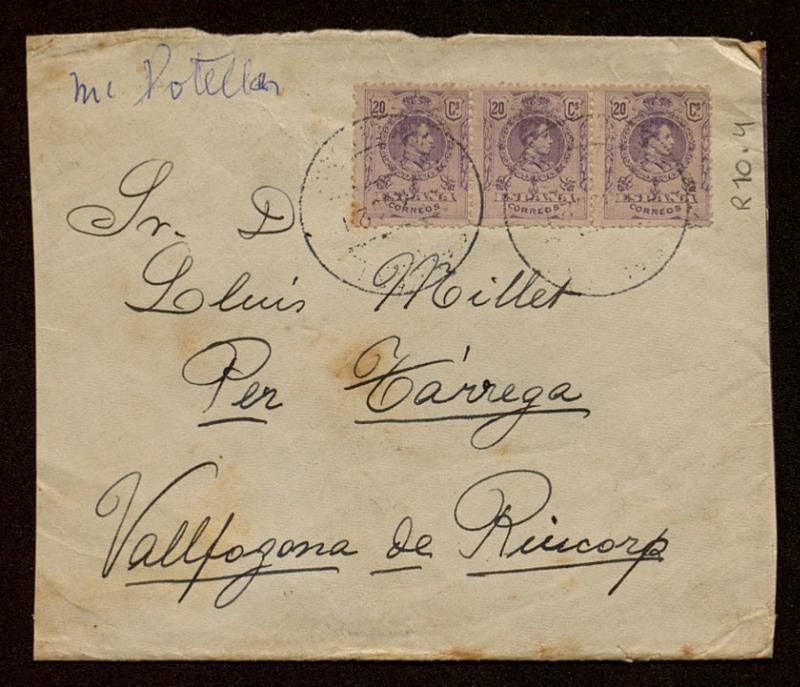 Mc Potellas
20 Cs 20 Cs 20 Cs
ESPAÑA ESPAÑA ESPAÑA
CORREOS CORREOS CORREOS
R 10.4
Sr. D.
Lluís Millet
Per Tárrega
Vallfogona de Riucorp